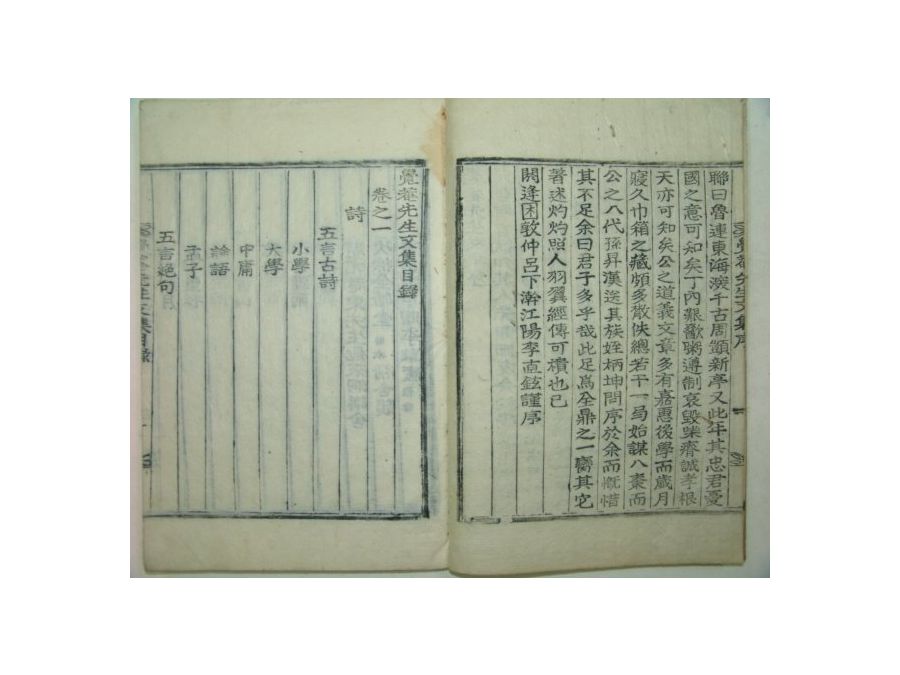 聯曰魯連東海濱千古周顗新亭又此年其忠君憂
國之意可知矣丁內艱歠粥遵制哀毀柴瘠誠孝根
天亦可知矣公之道義文章多有嘉惠後學而歲月
寢久巾箱之藏頗多散佚總若干一局始謀入棗而
公之八代孫昇漢送其族姪柄坤問序於余而慨惜
其不足余曰君子多乎哉此足爲全鼎之一臠其它
著述灼灼照人羽翼經傳可槓也已
閼逢困敦仲呂下澣江陽李直鉉謹序
覺菴先生文集序
覺菴先生文集目錄
卷之一
詩
五言古詩
小學
大學
中庸
論語
孟子
五言絕句
覺菴先生文集目錄